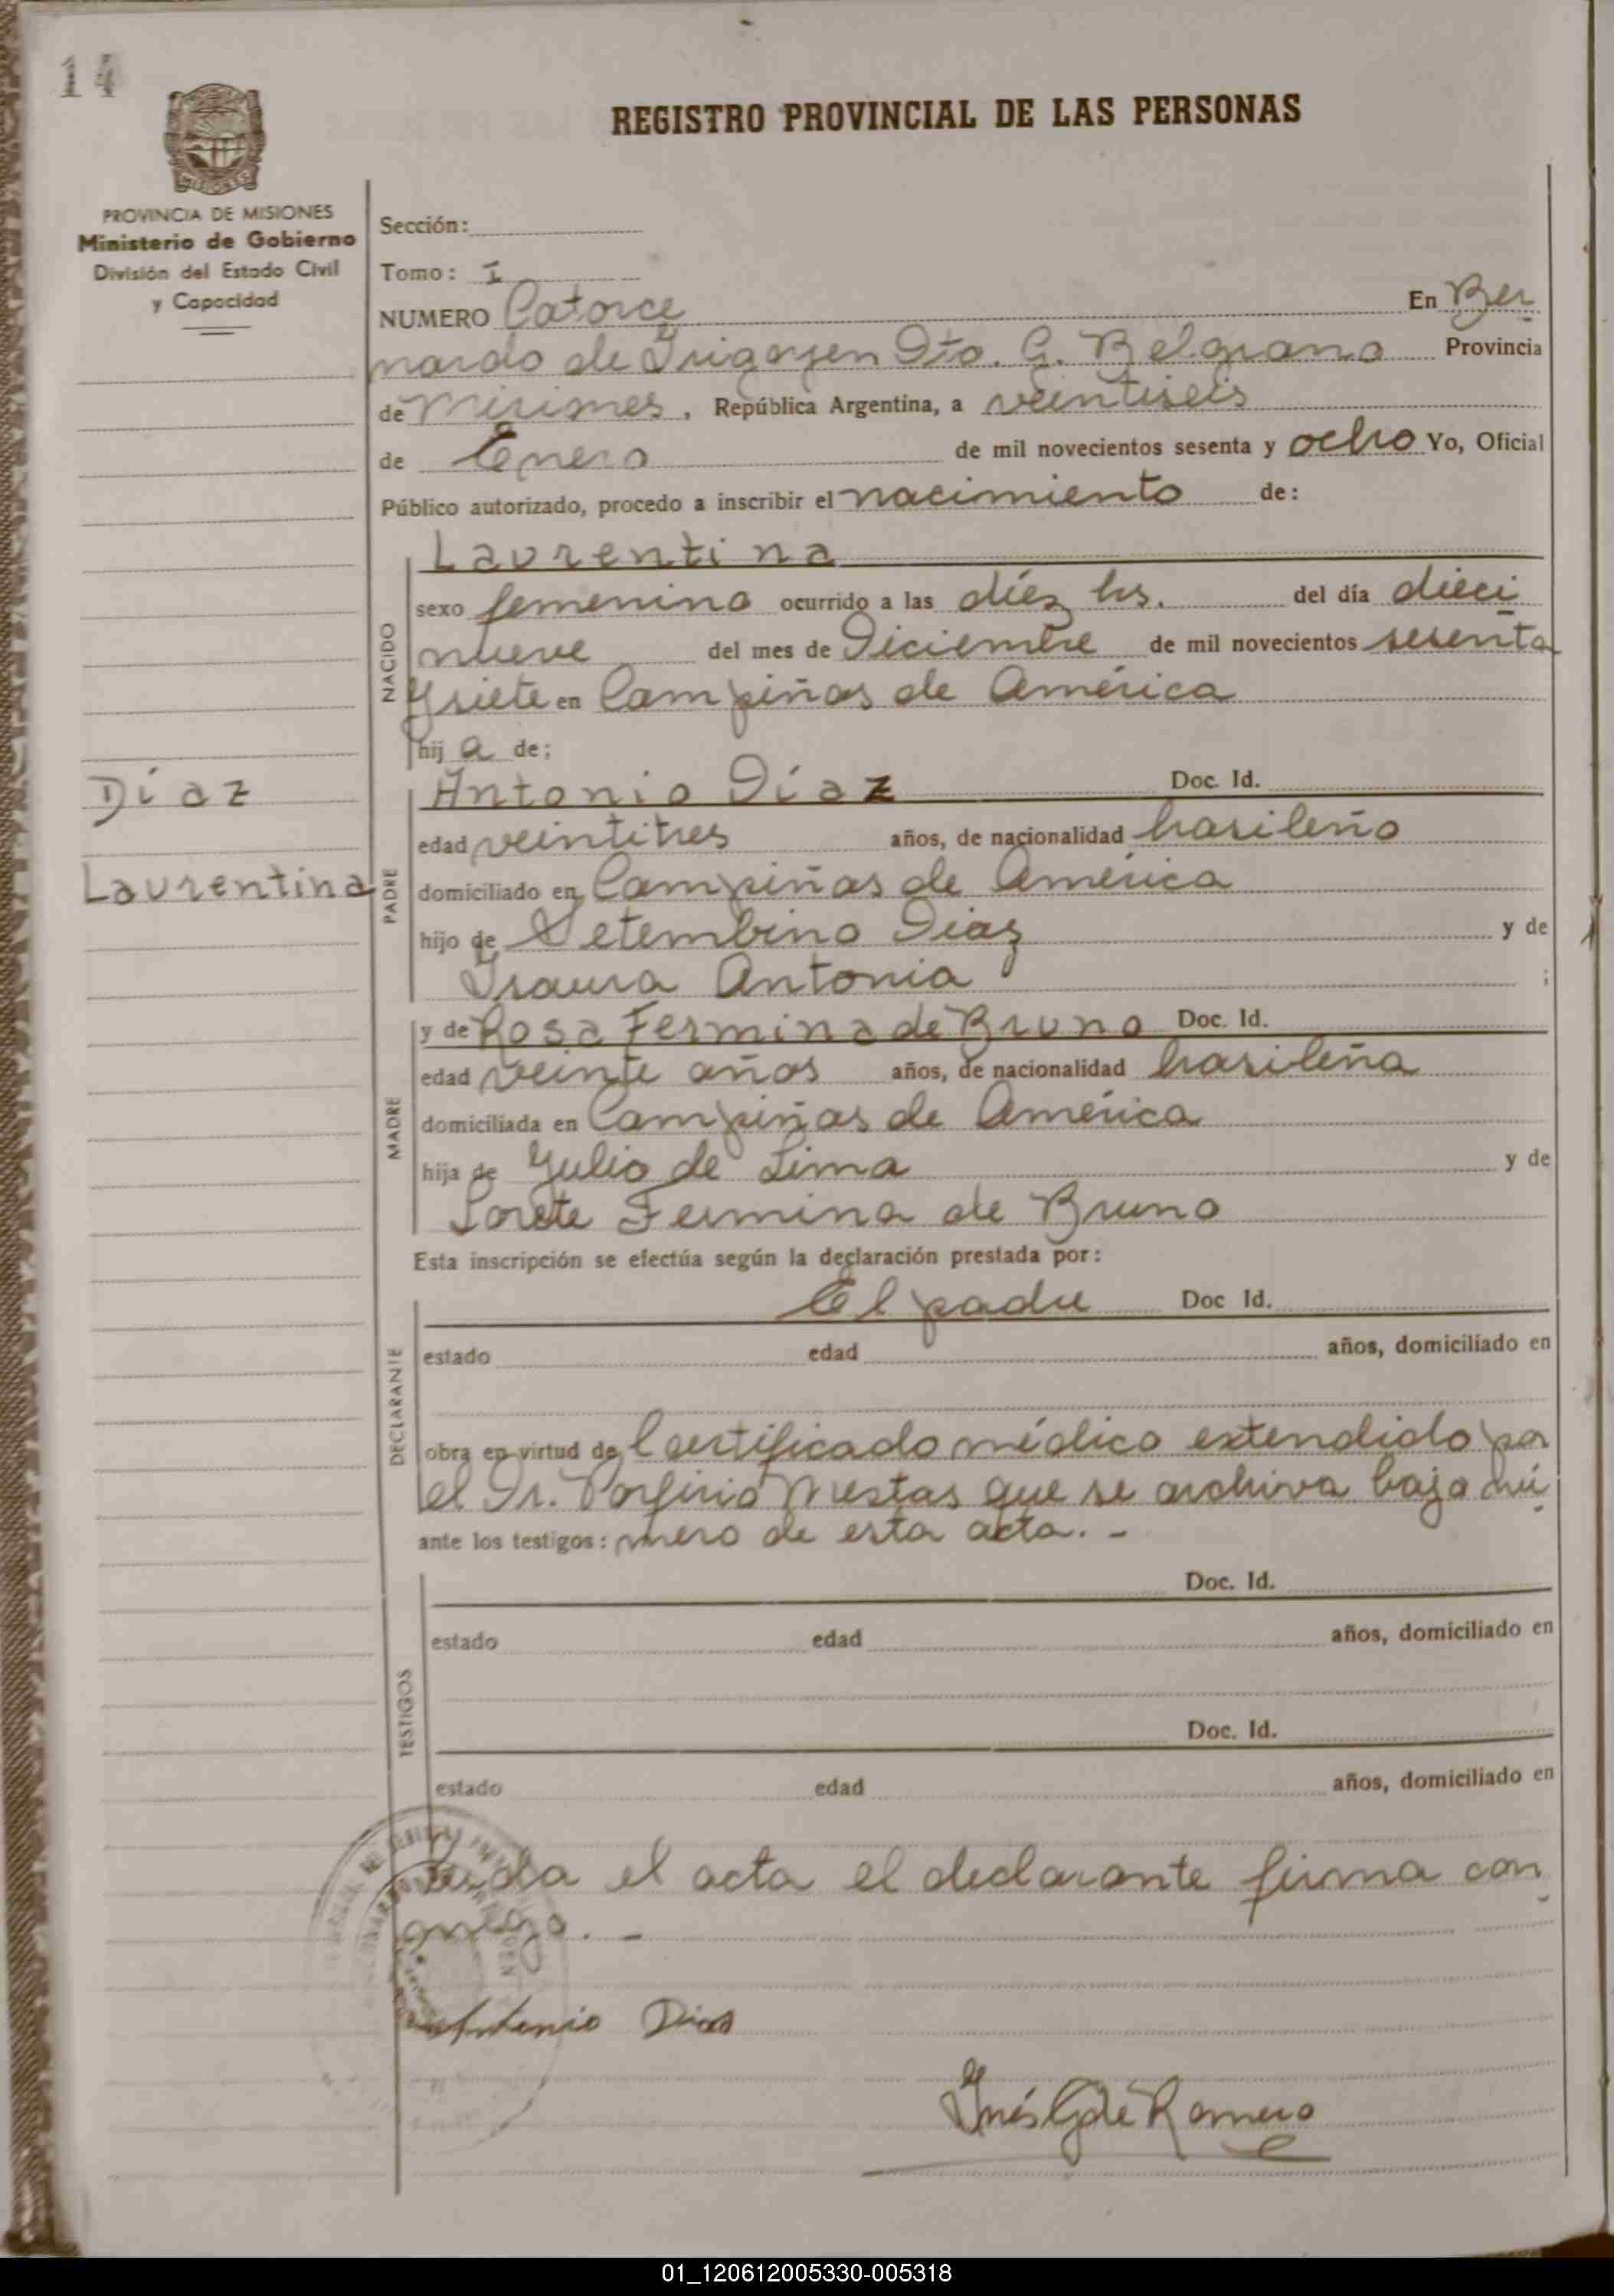 14
REGISTRO PROVINCIAL DE LAS PERSONAS
PROVINCIA DE MISIONES
Ministerio de Gobierno
División del Estado Civil
y Capacidad
Sección:
Tomo: I
NUMERO Catorce En Ber
nardo de Irigoyen Dto. G. Belgrano Provincia
de Misiones, República Argentina, a veintiseis
de Enero de mil novecientos sesenta y ocho Yo, Oficial
Público autorizado, procedo a inscribir el nacimiento de:
Laurentina
NACIDO
sexo femenino ocurrido a las diéz hs. del día dieci
nueve del mes de Diciembre de mil novecientos sesenta
y siete en Campiñas de América
hij a de;
Díaz
Laurentina
PADRE
Antonio Díaz Doc. Id.
edad veintitres años, de nacionalidad brasileño
domiciliado en Campiñas de América
hijo de Setembrino Diaz y de
Isaura Antonia ;
MADRE
y de Rosa Fermina de Bruno Doc. Id.
edad veinte años años, de nacionalidad brasileña
domiciliada en Campiñas de América
hija de Julio de Lima y de
Lorete Fermina de Bruno
Esta inscripción se efectúa según la declaración prestada por:
DECLARANTE
El padre Doc Id.
estado edad años, domiciliado en
obra en virtud de Certificado médico extendido por
el Dr. Porfirio que se archiva bajo nú
ante los testigos: mero de esta acta. -
TESTIGOS
Doc. Id.
estado edad años, domiciliado en
Doc. Id.
estado edad años, domiciliado en
Leida el acta el declarante firma con
migo. -
Antonio Dias
Inés G. de Romero
01_120612005330-005318